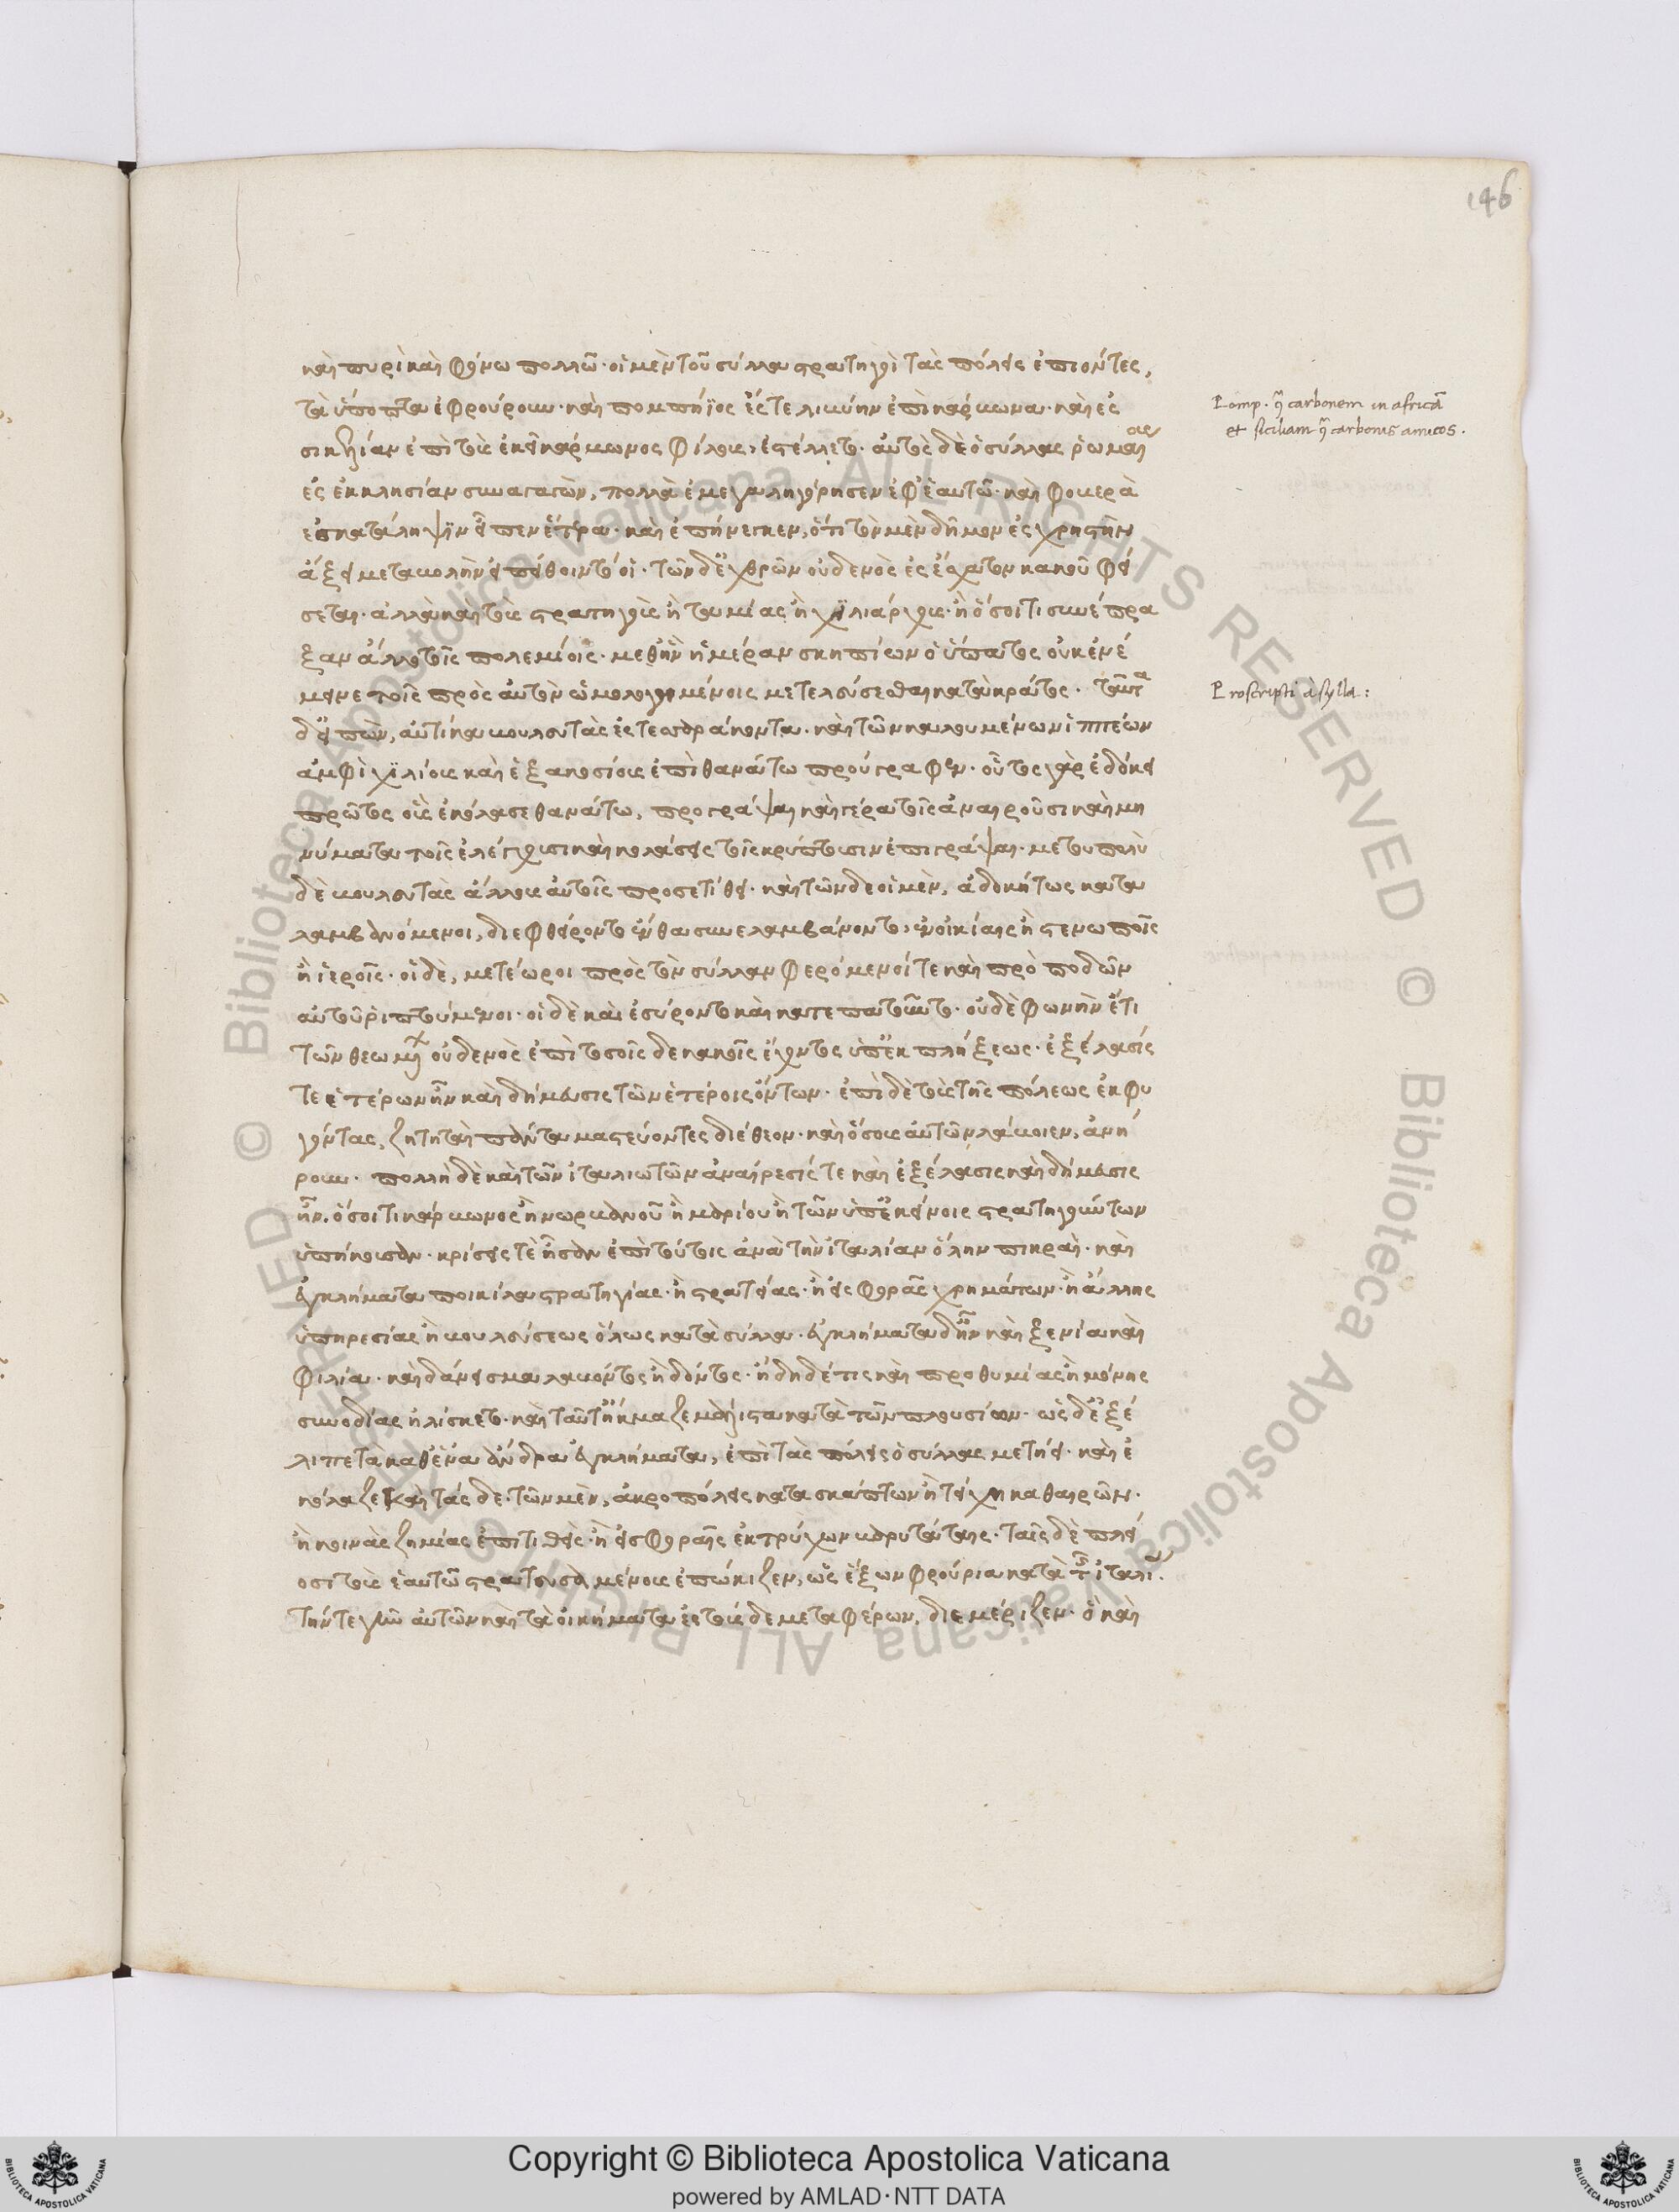 146
καὶ πυρὶ καὶ φόνω πολλῶ· οἱ μὲν τοῦ σύλλα στρατηγοὶ τὰς πόλεις ἐπιόντες,
τὰ ὕποπτα ἐφρούρουν· καὶ πομπήϊος ἔς τε λιβύην ἐπὶ κάρβωνα· καὶ ἐς
σικελίαν ἐπὶ τοὺς ἐκεῖ κάρβωνος φίλους, ἐστέλλετο· αὐτὸς δὲ ὁ σύλλας ῥωμαίους
ἐς ἐκκλησίαν συναγαγὼν, πολλὰ ἐμεγαληγόρησεν ἐφ' ἑαυτῶ· καὶ φοβερὰ
ἐς κατάπληξϊν εἶπεν ἕτερα· καὶ ἐπήνεγκεν, ὅτι τὸν μὲν δῆμον ἐς χρηστὴν
ἄξει μεταβολὴν εἰ πείθοιντό οἱ· τῶν δ' ἐχθρῶν οὐδενὸς ἐς ἔσχατον κακοῦ φεί
σεται· ἀλλὰ καὶ τοὺς στρατηγοὺς ἢ ταμίας ἢ χϊλιάρχους· ἢ ὅσοι τι συνέπρα
ξαν ἄλλο τοῖς πολεμίοις· μεθ' ἣν ἡμέραν σκηπίων ὁ ὕπατος οὐκ ἐνέ
μεινε τοῖς πρὸς αὐτὸν ὡμολογημένοις μετελεύσεσθαι κατὰ κράτος. ταῦτα
δ' εἰπὼν, αὐτίκα βουλευτὰς ἐς τεσσαράκοντα· καὶ τῶν καλουμένων ἱππέων
ἀμφὶ χϊλίους καὶ ἑξακοσίους ἐπὶ θανάτω προύγραφεν· οὗτος γὰρ ἐδόκει
πρῶτος οὓς ἐκόλασε θανάτω, προγράψαι καὶ γέρα τοῖς ἀναιροῦσι καὶ μη
νύματα τοῖς ἐλέγχουσι καὶ κολάσεις τοῖς κρύπτουσιν ἐπιγράψαι· μετ' οὐ πολὺ
δὲ βουλευτὰς ἄλλους αὐτοῖς προσετίθει· καὶ τῶνδε οἱ μὲν, ἀδοκήτως κατα
λαμβανόμενοι, διεφθείροντο ἔνθα συνελαμβάνοντο, ἐν οἰκίαις ἢ στενωποῖς
ἢ ἱεροῖς· οἱ δὲ, μετέωροι πρὸς τὸν σύλλαν φερόμενοί τε καὶ πρὸ ποδῶν
αὐτοῦ ῥιπτούμενοι· οἱ δὲ καὶ ἐσύροντο καὶ κατεπατοῦντο· οὐδὲ φωνὴν ἔτι
τῶν θεωμένων οὐδενὸς ἐπὶ τοσοῖσδε κακοῖς ἔχοντος ὑπ' ἐκπλήξεως· ἐξέλασίς
τε ἑτέρων ἦν καὶ δήμευσις τῶν ἑτέροις ὄντων· ἐπὶ δὲ τοὺς τῆς πόλεως ἐκφυ
γόντας, ζητηταὶ πάντα μαστεύοντες διέθεον· καὶ ὅσους αὐτῶν λάβοιεν, ἀνή
ρουν· πολλὴ δὲ καὶ τῶν ἰταλιωτῶν ἀναίρεσίς τε καὶ ἐξέλασις καὶ δήμευσις
ἦν. ὅσοι τι κάρβωνος ἢ νωρβανοῦ ἢ μαρίου ἢ τῶν ὑπ' ἐκείνοις στρατηγούντων
ὑπήκουσαν· κρίσεις τὲ ἦσαν ἐπὶ τούτοις ἀνὰ τὴν ἰταλίαν ὅλην πικραὶ· καὶ
ἐγκλήματα ποικίλα στρατηγίας· ἢ στρατείας· ἢ ἐσφορᾶς χρημάτων· ἢ ἄλλης
ὑπηρεσίας ἢ βουλεύσεως ὅλως κατὰ σύλλα· ἐγκλήματα δ' ἦν καὶ ξενία καὶ
φιλία· καὶ δάνεισμα λαβόντος ἢ δόντος· ἤδη δέ τις καὶ προθυμίας ἢ μόνης
συνοδίας ἡλίσκετο· καὶ ταῦτ' ἤκμαζε μάλιστα κατὰ τῶν πλουσίων· ὡς δ' ἐξέ
λιπε τὰ καθ' ἕνα ἄνδρα ἐγκλήματα, ἐπὶ τὰς πόλεις ὁ σύλλας μετήει· καὶ ἐ
κόλαζε καὶ τάσδε· τῶν μὲν, ἀκροπόλεις κατασκάπτων ἢ τείχη καθαιρῶν·
ἢ κοινὰς ζημίας ἐπιτιθεὶς· ἢ εἰσφοραῖς ἐκτρύχων βαρυτάταις· ταῖς δὲ πλεί
οσι τοὺς ἑαυτῶ στρατευσαμένους ἐπώκιζεν, ὡς ἕξων φρούρια κατὰ τῆς ἰταλίας·
τήν τε γῆν αὐτῶν καὶ τὰ οἰκήματα ἐς τούσδε μεταφέρων, διεμέριζεν· ὃ καὶ
Pomp. q̄ carbonem in africā
et siciliam q̄ carbonis amicos.
Proscripti à sylla:
Copyright © Biblioteca Apostolica Vaticana
powered by AMLAD·NTT DATA